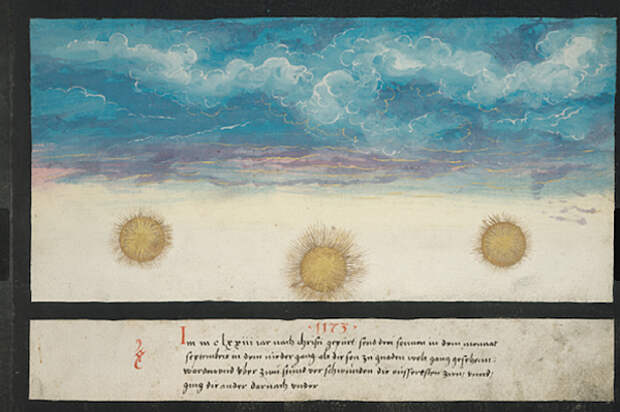 · 1173 ·
Im m c lxxiii iar nach christi gepürt send drey sonnen in dem monnat
septembris in dem nieder gang als die son zu gnaden wolt gang gesechenn:
worden vnd vber zwu stund verschwunden die aüsseresten zwu vnnd
ging die ander darnach vnder